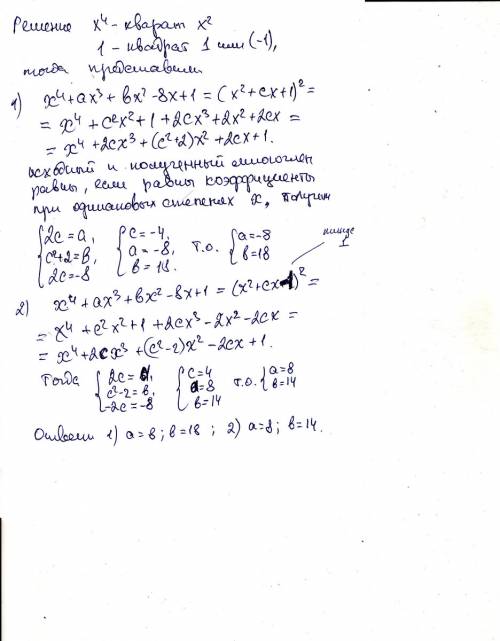 Решение x⁴ - квадрат x²
1 - квадрат 1 или (-1),
тогда представим
1) x⁴+ax³+bx²-8x+1=(x²+cx+1)²=
= x⁴+c²x²+1+2cx³+2x²+2cx=
= x⁴+2cx³+(c²+2)x²+2cx+1.
исходный и полученный многочлен
равны, если равны коэффициенты
при одинаковых степенях x, получим
{2c=a, c²+2=b, 2c=-8 {c=-4, a=-8, b=18. т.о. {a=-8 b=18
1
2) x⁴+ax³+bx²-8x+1=(x²+cx-1)²=
= x⁴+c²x²+1+2cx³-2x²-2cx=
= x⁴+2cx³+(c²-2)x²-2cx+1.
Тогда {2c=a, c²-2=b, -2c=-8 {c=4 a=8 b=14 т.о. {a=8 b=14
Ответ: 1) a=8; b=18; 2) a=8; b=14.